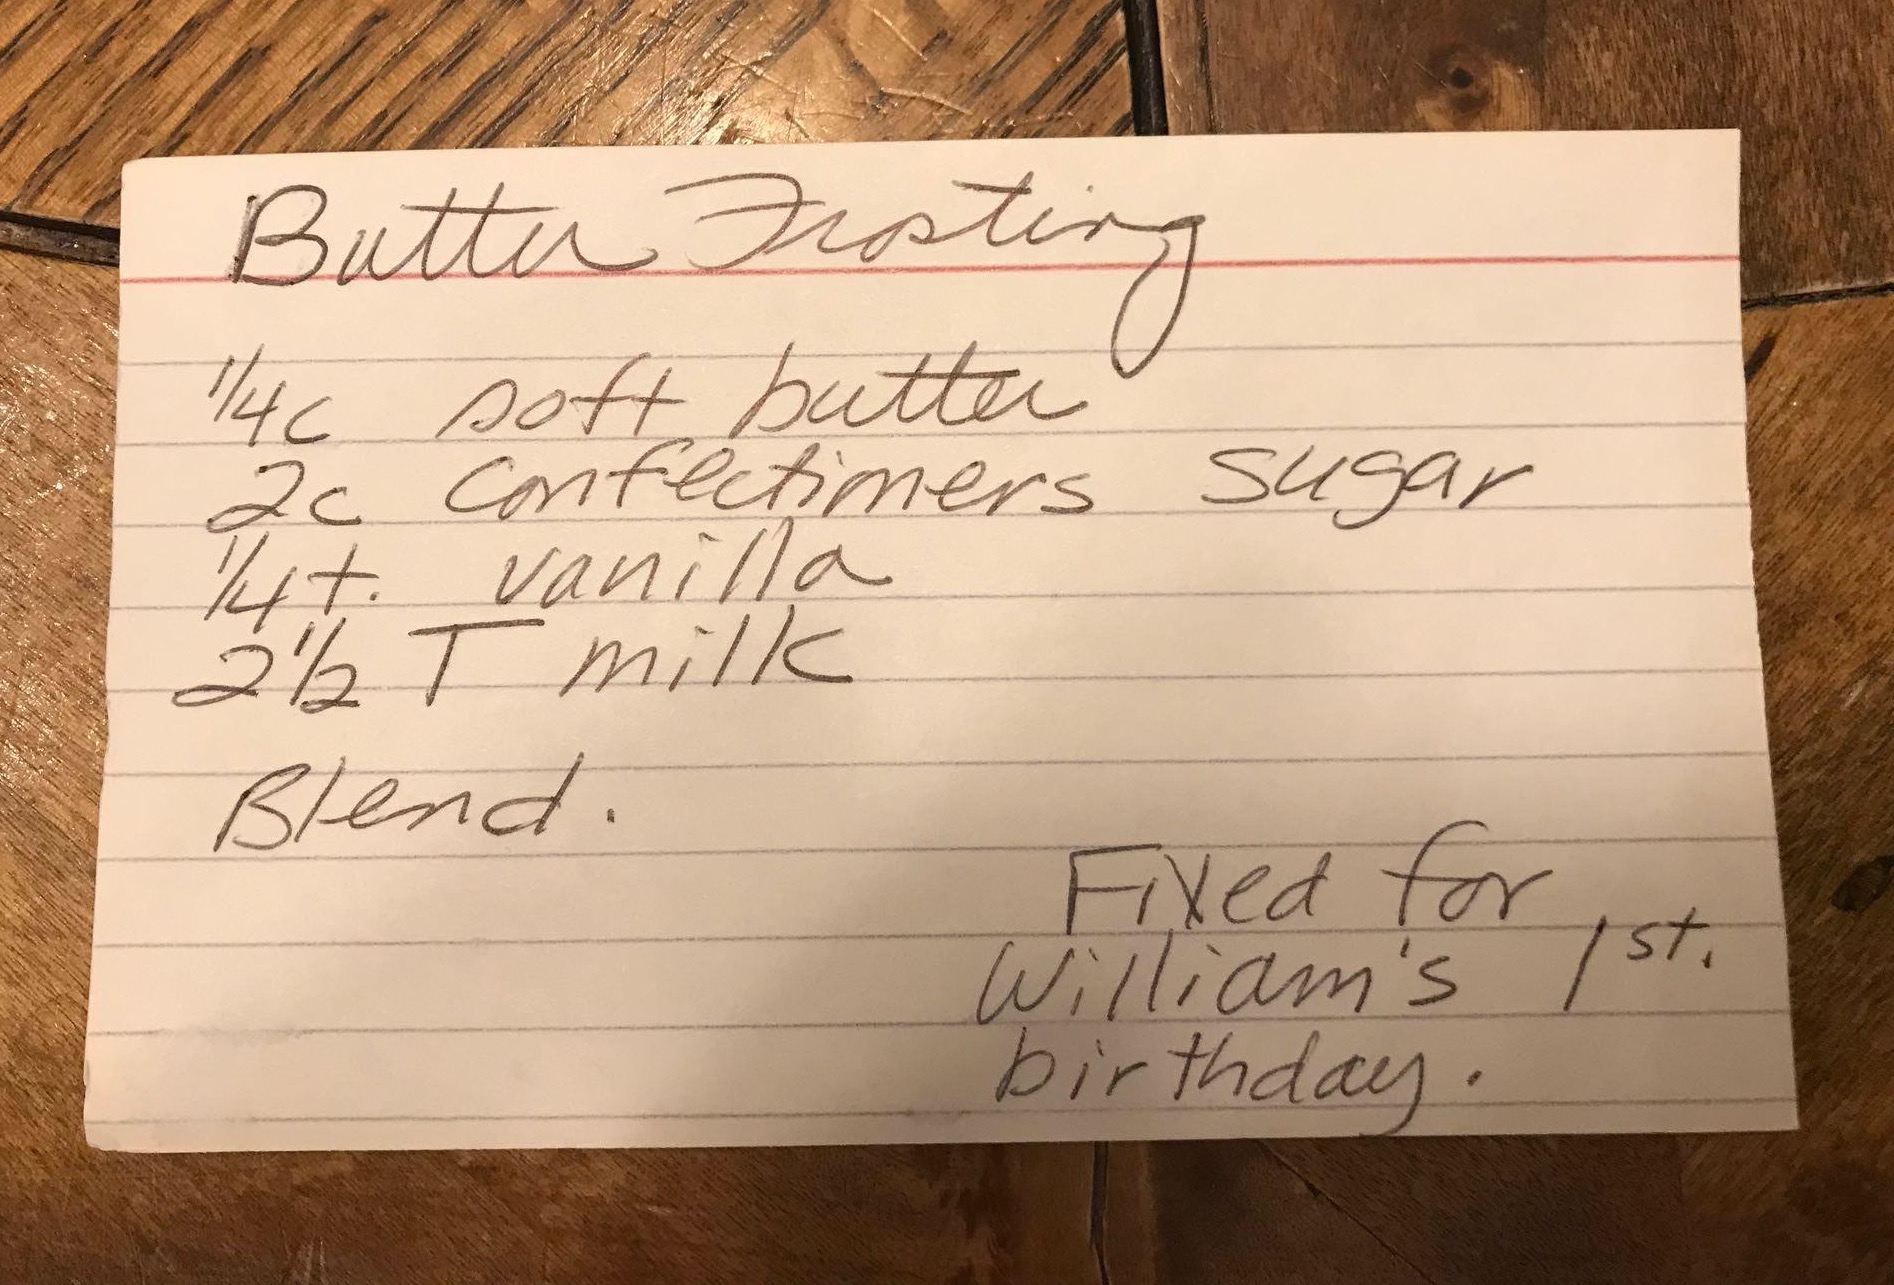 Butter Frosting
1/4c soft butter
2c confectioners sugar
1/4 t. vanilla
2 1/2 T milk
Blend.
Fixed for
William's 1st.
birthday.